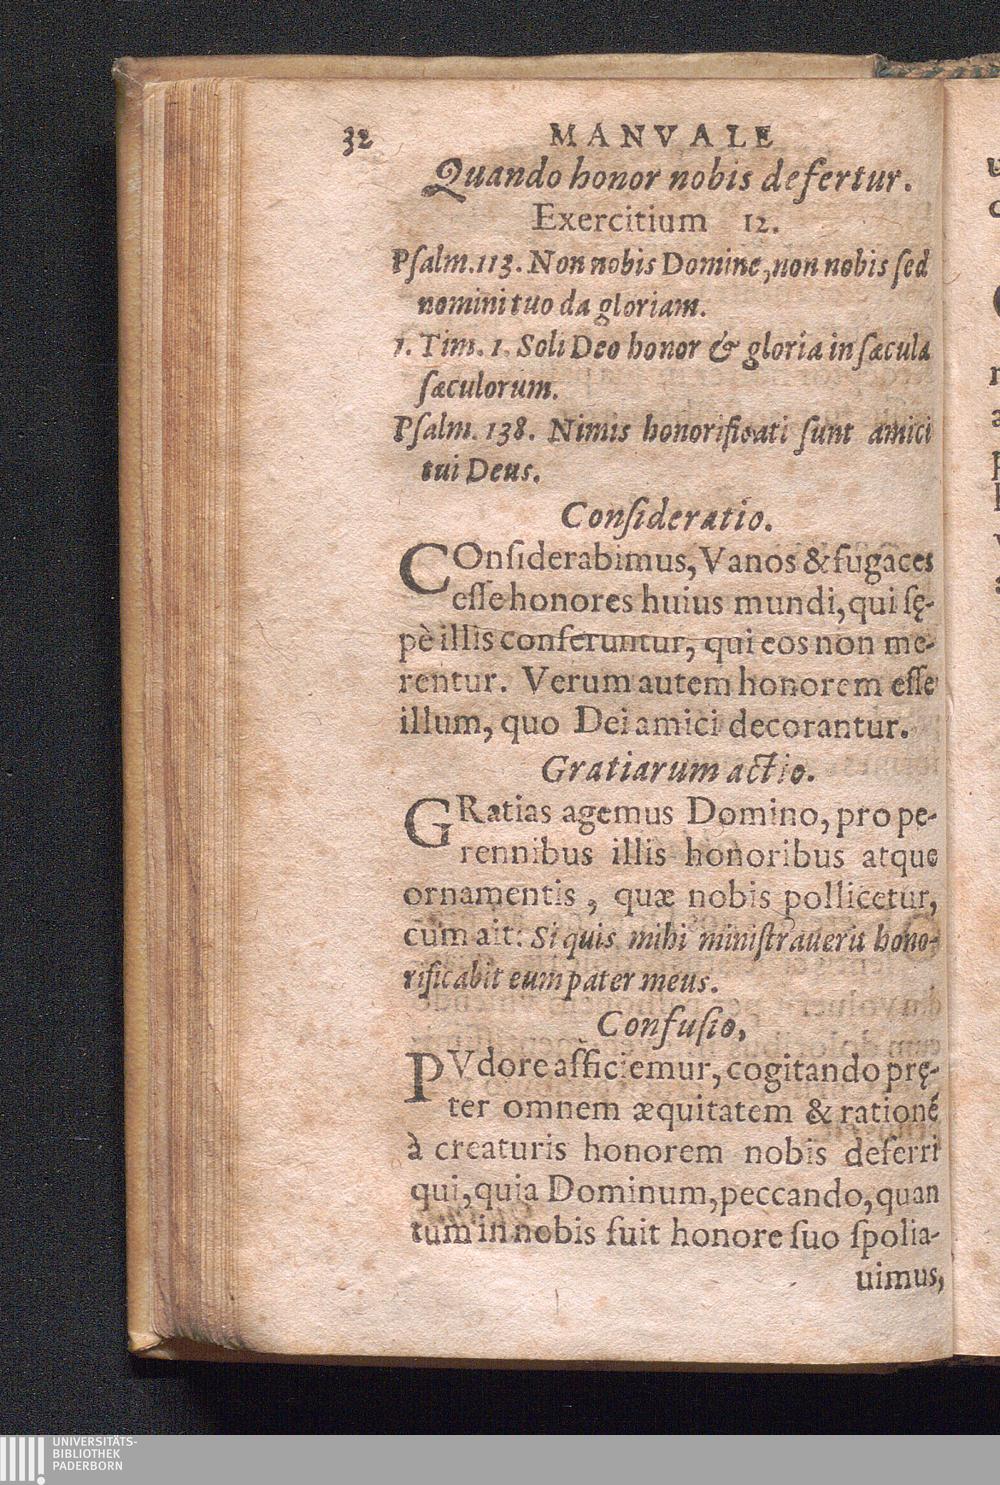 32 MANVALE
Quando honor nobis defertur.
Exercitium 12.
Pſalm. 113. Non nobis Domine, non nobis ſed
nomini tuo da gloriam.
1. Tim. 1. Soli Deo honor & gloria in ſæcula
ſæculorum.
Pſalm. 138. Nimis honorificati ſunt amici
tui Deus.
Conſideratio.
COnſiderabimus, Vanos & fugaces
eſſe honores huius mundi, qui ſę-
pè illis conferuntur, qui eos non me-
rentur. Verum autem honorem eſſe
illum, quo Dei amici decorantur.
Gratiarum actio.
GRatias agemus Domino, pro pe-
rennibus illis honoribus atque
ornamentis, quæ nobis pollicetur,
cùm ait: Si quis mihi miniſtrauerit hono-
rificabit eum pater meus.
Confuſio,
PVdore afficiemur, cogitando prę-
ter omnem æquitatem & rationē
à creaturis honorem nobis deferri
qui, quia Dominum, peccando, quan
tum in nobis fuit honore ſuo ſpolia-
uimus,
UNIVERSITÄTS-
BIBLIOTHEK
PADERBORN